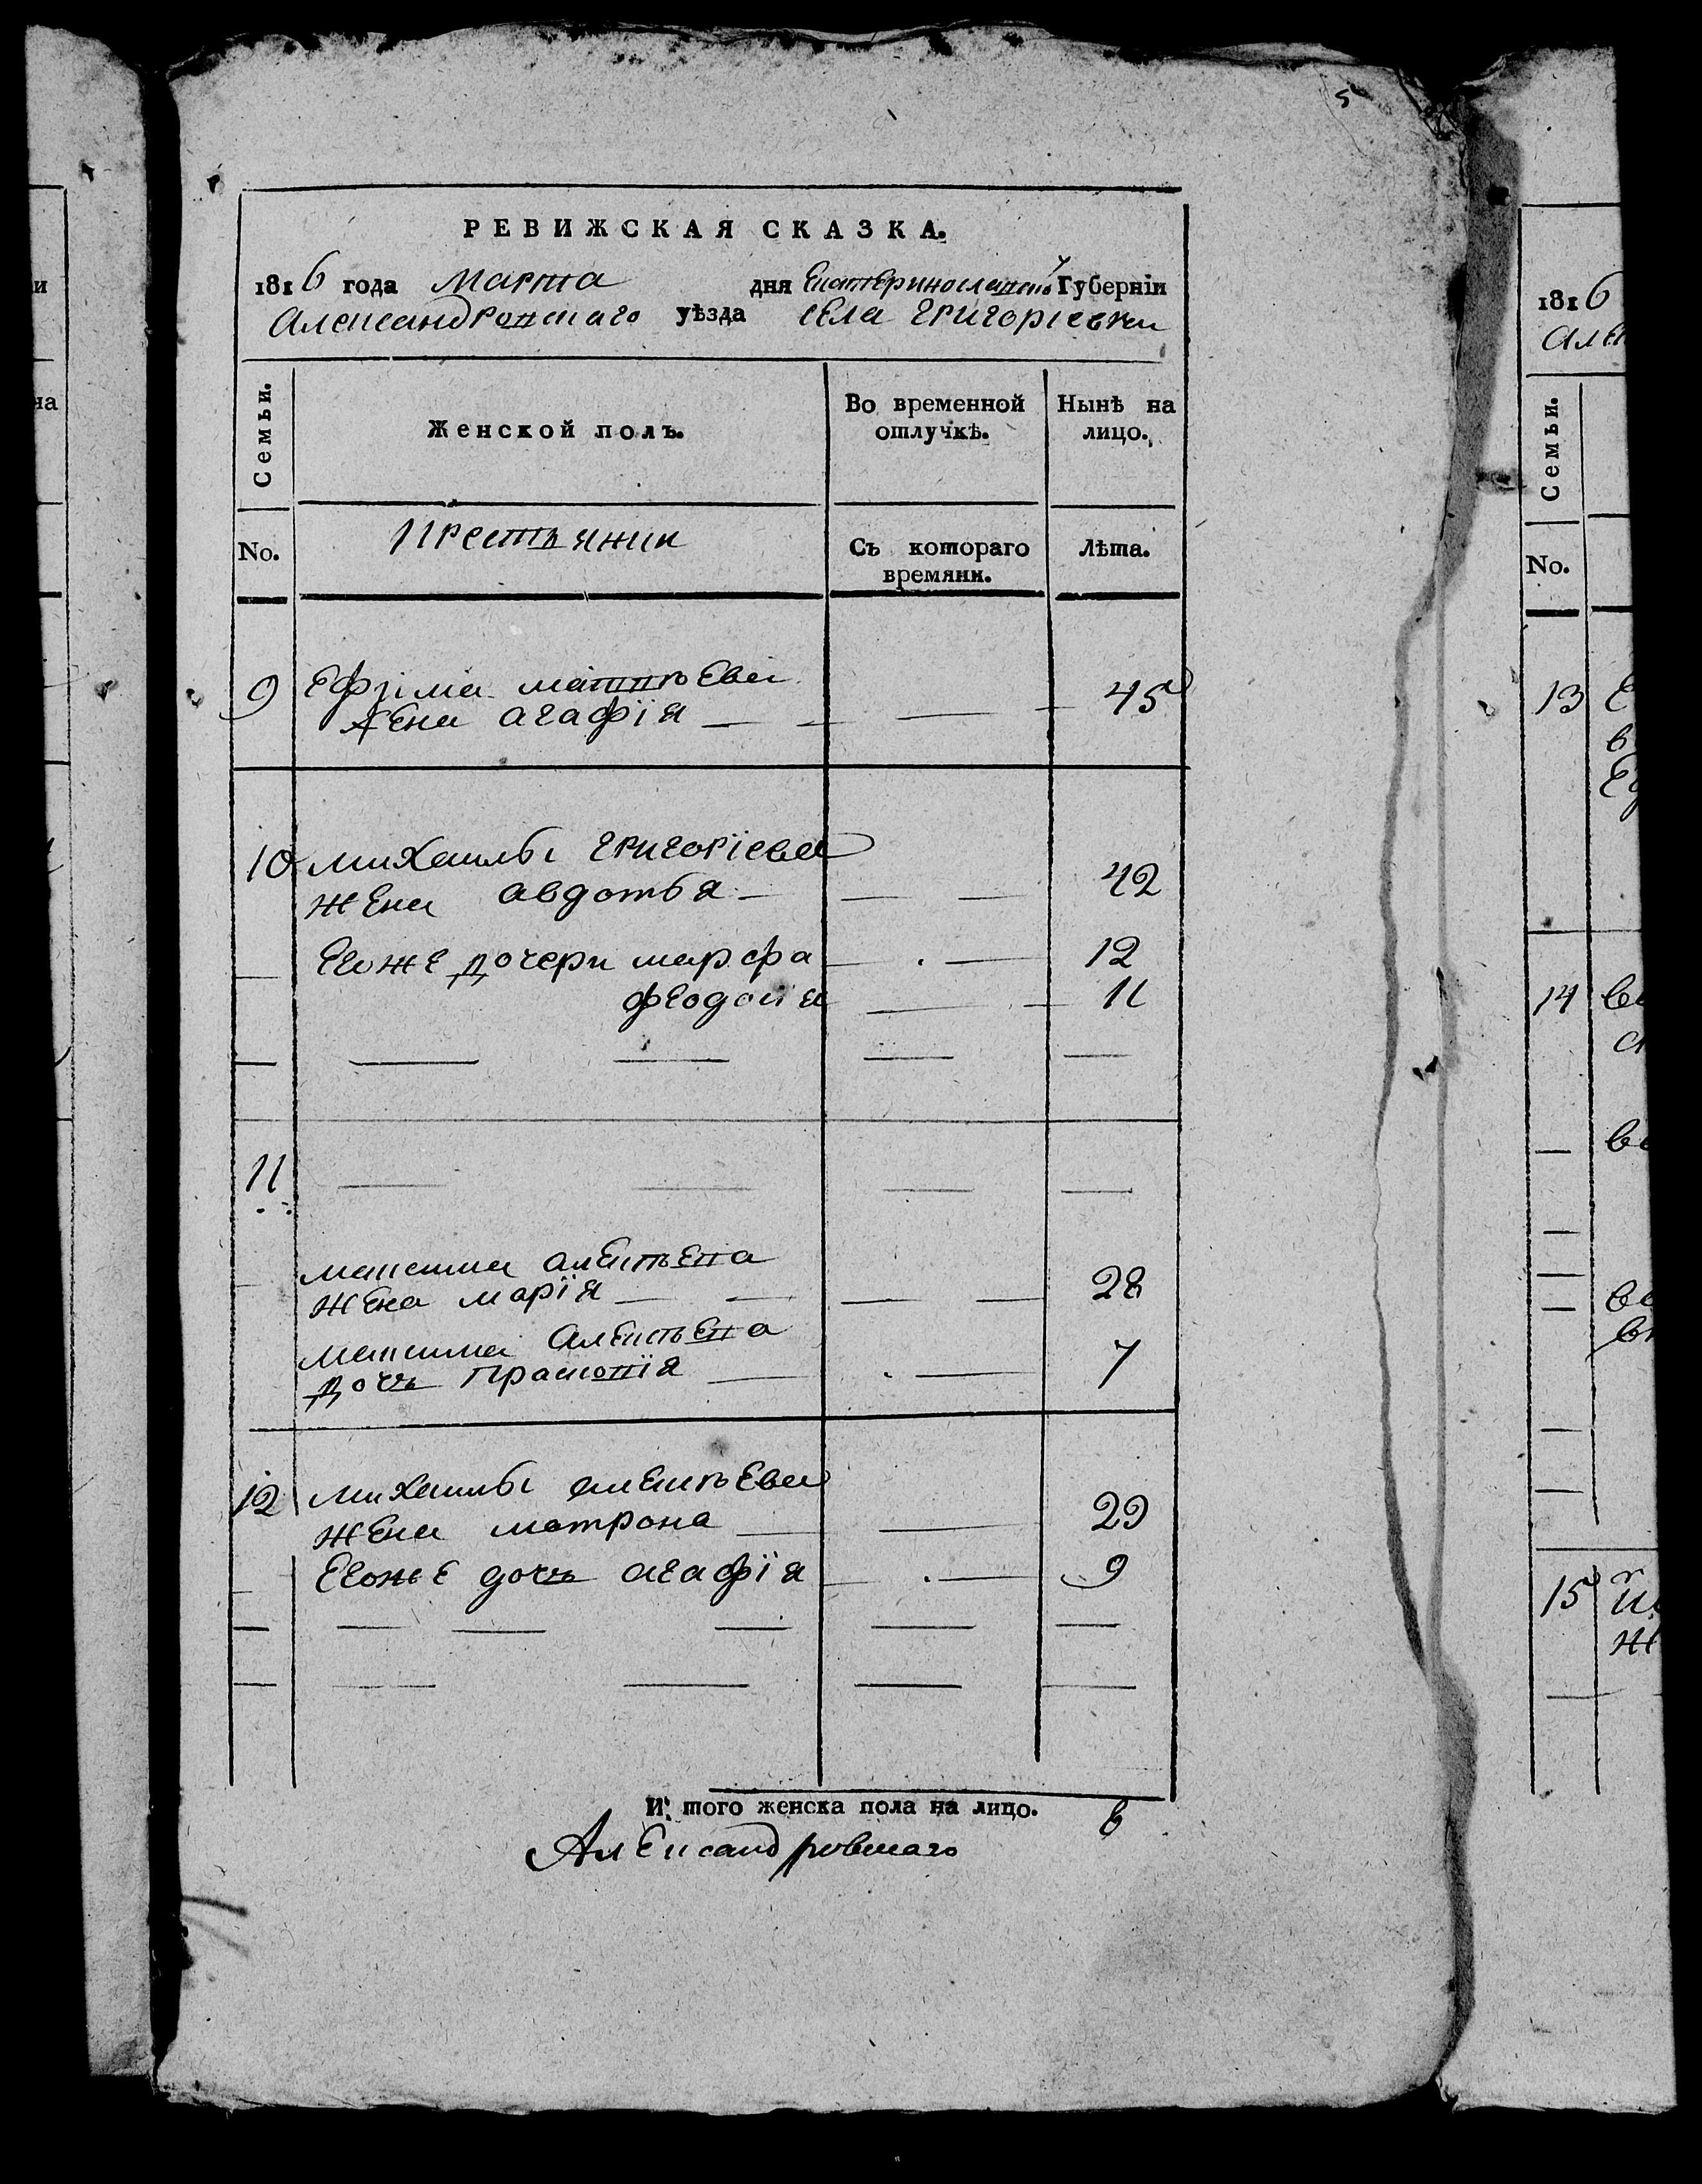 5
РЕВИЖСКАЯ СКАЗКА.
1816 года Марта дня Екатеринославской Губерніи
Александровскаго уѣзда села Григорїевки
Семьи.
Женской полъ.
Во временной отлучкѣ.
Нынѣ на лицо.
No.
Крестьянки
Съ котораго времяни.
Лѣта.
9 Ефима Матвѣева
жена агафїя — — — 45
10 михайлы григорїева
жена авдотья — — — 42
— Егоже дочери марфа — — 12
феодосїя — — 11
— — — — —
11 — — — —
— максима алексѣева
жена марїя — — — — 28
максима Алексѣева
дочь прасковїя — — 7
12 михайлы алексѣева
жена матрона — — 29
— Егоже дочь агафїя — — 9
— — — — — —
— — — — —
И того женска пола на лицо. 6
Александровскаго
и
на
1816
Але
Семьи.
No.
13 Е
в
Еф
14
15
ж